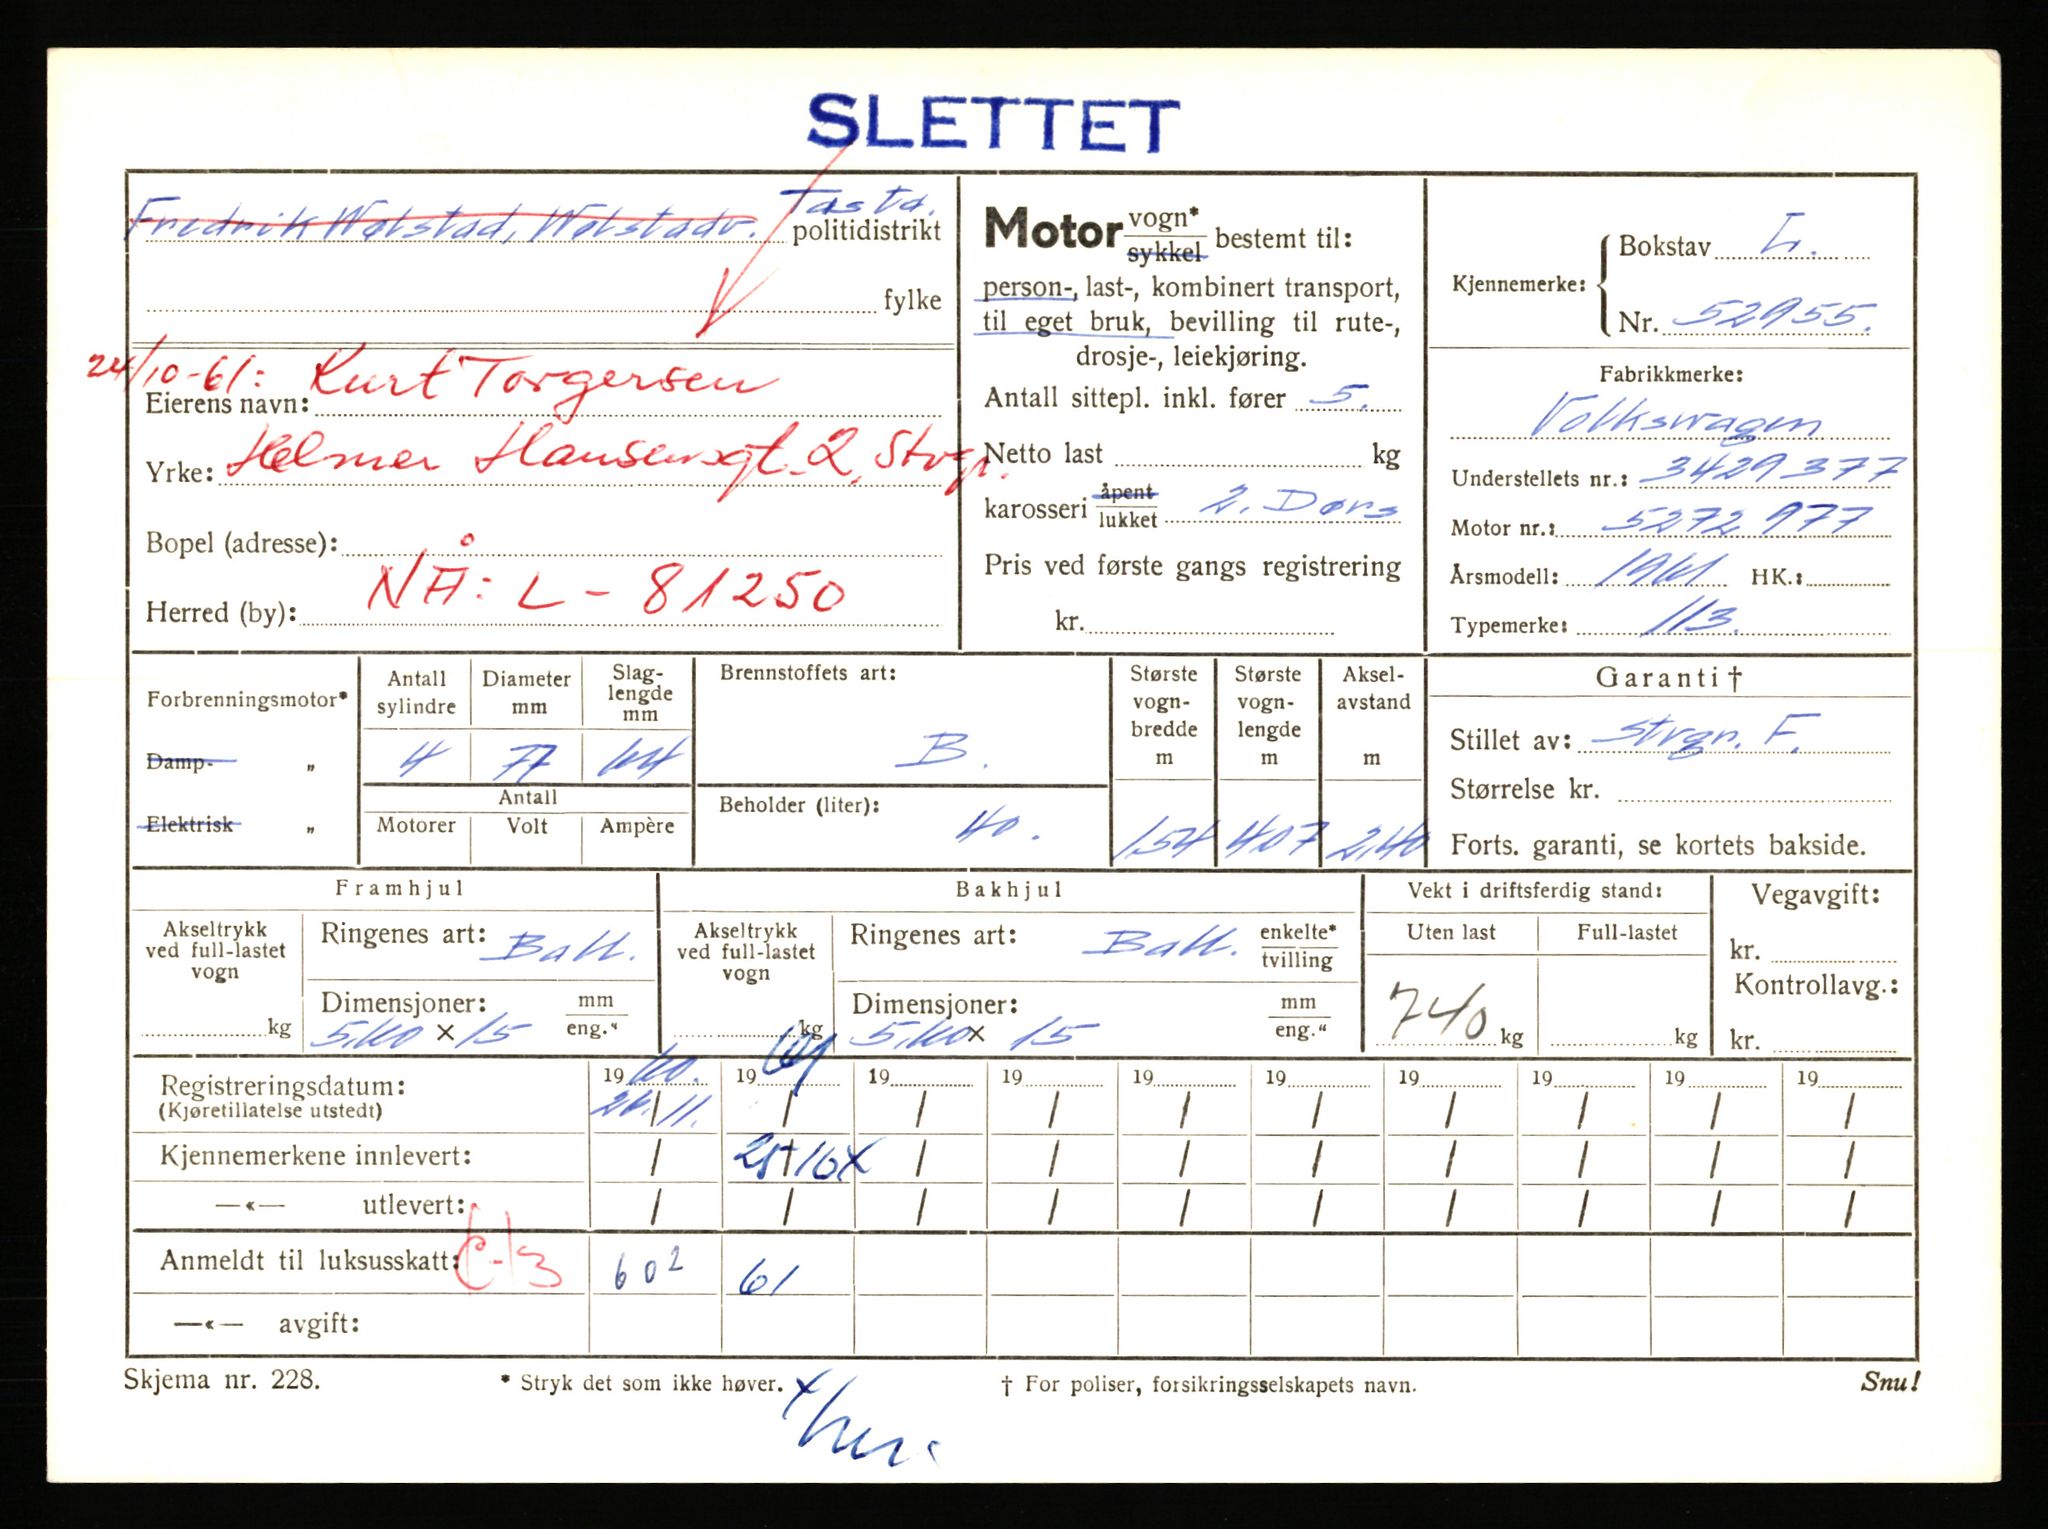 SLETTET
Tasta.
Fredrik Wølstad, Wølstadv. politidistrikt
fylke
24/10-61: Kurt Torgersen
Eierens navn:
Helmer Hansensgt. 2, Stvgr.
Yrke:
Bopel (adresse):
NÅ: L - 81250
Herred (by):
Motor vogn* sykkel bestemt til:
person-, last-, kombinert transport,
til eget bruk, bevilling til rute-,
drosje-, leiekjøring.
Antall sittepl. inkl. fører 5.
Netto last kg
karosseri åpent lukket 2. Dørs
Pris ved første gangs registrering
kr.
Kjennemerke: Bokstav L.
Nr. 52955.
Fabrikkmerke:
Volkswagen
Understellets nr.: 3429377
Motor nr.: 5272977
Årsmodell: 1961 HK.:
Typemerke: 113.
Forbrenningsmotor*
Damp- „
Elektrisk „
Antall sylindre Diameter mm Slag-lengde mm
4 77 64
Antall
Motorer Volt Ampère
Brennstoffets art:
B.
Beholder (liter):
40.
Største vogn-bredde m Største vogn-lengde m Aksel-avstand m
1,54 4,07 2,40
Garanti †
Stillet av: Stvgr. F.
Størrelse kr.
Forts. garanti, se kortets bakside.
Framhjul
Akseltrykk ved full-lastet vogn
kg
Ringenes art: Ball.
Dimensjoner: mm eng."
5,60 x 15
Bakhjul
Akseltrykk ved full-lastet vogn
kg
Ringenes art: Ball. enkelte* tvilling
Dimensjoner: mm eng."
5,60 x 15
Vekt i driftsferdig stand:
Uten last Full-lastet
740 kg kg
Vegavgift:
kr.
Kontrollavg.:
kr.
Registreringsdatum: 1960. 1961 19 19 19 19 19 19 19 19
(Kjøretillatelse utstedt) / 11. / / / / / / / / /
Kjennemerkene innlevert: / / 10 x / / / / / / / /
—«— utlevert: / / / / / / / / / /
Anmeldt til luksusskatt: 602 61
—«— avgift:
Skjema nr. 228. * Stryk det som ikke høver. † For poliser, forsikringsselskapets navn. Snu!
x/